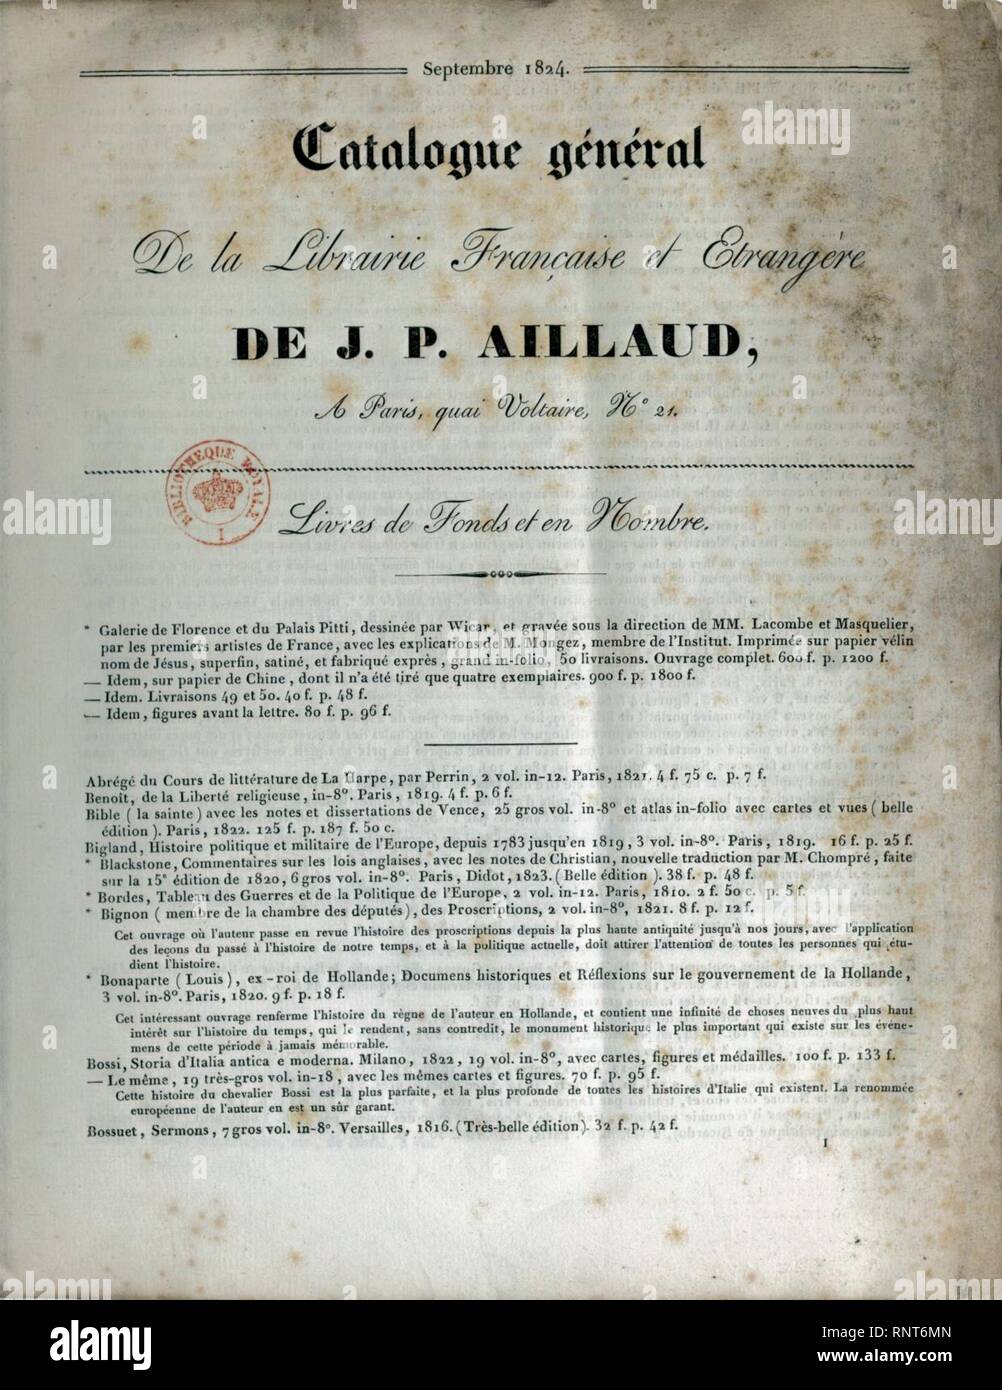 Septembre 1824.
Catalogue général
De la Librairie Française et Etrangère
DE J. P. AILLAUD,
A Paris, quai Voltaire, N° 21.
BIBLIOTHEQUE ROYALE
I
Livres de Fonds et en Nombre.
* Galerie de Florence et du Palais Pitti, dessinée par Wicar, et gravée sous la direction de MM. Lacombe et Masquelier,
par les premiers artistes de France, avec les explications de M. Mongez, membre de l'Institut. Imprimée sur papier vélin
nom de Jésus, superfin, satiné, et fabriqué exprès, grand in-folio, 50 livraisons. Ouvrage complet. 600 f. p. 1200 f.
— Idem, sur papier de Chine, dont il n'a été tiré que quatre exemplaires. 900 f. p. 1800 f.
— Idem. Livraisons 49 et 50. 40 f. p. 48 f.
— Idem, figures avant la lettre. 80 f. p. 96 f.
Abrégé du Cours de littérature de La Harpe, par Perrin, 2 vol. in-12. Paris, 1821. 4 f. 75 c. p. 7 f.
Benoît, de la Liberté religieuse, in-8°. Paris, 1819. 4 f. p. 6 f.
Bible (la sainte) avec les notes et dissertations de Vence, 25 gros vol. in-8° et atlas in-folio avec cartes et vues (belle
édition). Paris, 1822. 125 f. p. 187 f. 50 c.
Bigland, Histoire politique et militaire de l'Europe, depuis 1783 jusqu'en 1819, 3 vol. in-8°. Paris, 1819. 16 f. p. 25 f.
* Blackstone, Commentaires sur les lois anglaises, avec les notes de Christian, nouvelle traduction par M. Chompré, faite
sur la 15e édition de 1820, 6 gros vol. in-8°. Paris, Didot, 1823. (Belle édition). 38 f. p. 48 f.
* Bordes, Tableau des Guerres et de la Politique de l'Europe, 2 vol. in-12. Paris, 1810. 2 f. 50 c. p. 5 f.
* Bignon (membre de la chambre des députés), des Proscriptions, 2 vol. in-8°, 1821. 8 f. p. 12 f.
Cet ouvrage où l'auteur passe en revue l'histoire des proscriptions depuis la plus haute antiquité jusqu'à nos jours, avec l'application
des leçons du passé à l'histoire de notre temps, et à la politique actuelle, doit attirer l'attention de toutes les personnes qui étu-
dient l'histoire.
* Bonaparte (Louis), ex-roi de Hollande; Documens historiques et Réflexions sur le gouvernement de la Hollande,
3 vol. in-8°. Paris, 1820. 9 f. p. 18 f.
Cet intéressant ouvrage renferme l'histoire du règne de l'auteur en Hollande, et contient une infinité de choses neuves du plus haut
intérêt sur l'histoire du temps, qui le rendent, sans contredit, le monument historique le plus important qui existe sur les événe-
mens de cette période à jamais mémorable.
Bossi, Storia d'Italia antica e moderna. Milano, 1822, 19 vol. in-8°, avec cartes, figures et médailles. 100 f. p. 133 f.
— Le même, 19 très-gros vol. in-18, avec les mêmes cartes et figures. 70 f. p. 95 f.
Cette histoire du chevalier Bossi est la plus parfaite, et la plus profonde de toutes les histoires d'Italie qui existent. La renommée
européenne de l'auteur en est un sûr garant.
Bossuet, Sermons, 7 gros vol. in-8°. Versailles, 1816. (Très-belle édition). 32 f. p. 42 f.
1
alamy
Image ID: RNT6MN
www.alamy.com